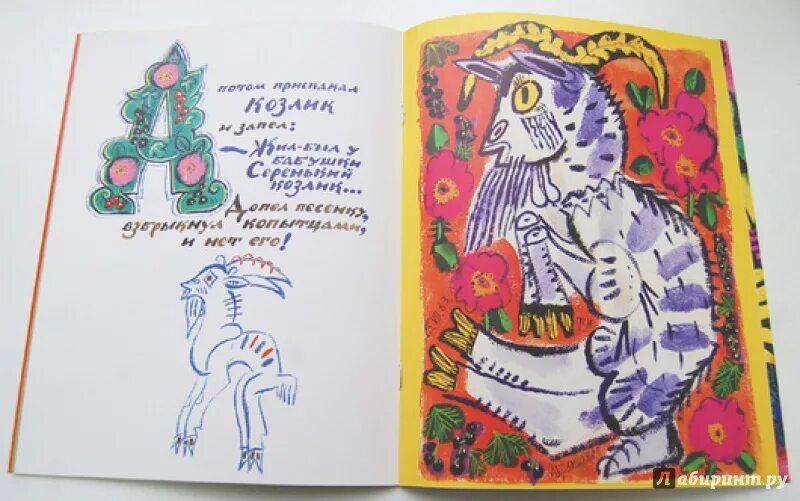 А
ПОТОМ ПРИСКАКАЛ
КОЗЛИК
И ЗАПЕЛ:
— ЖИЛ-БЫЛ У
БАБУШКИ
СЕРЕНЬКИЙ
КОЗЛИК...
ДОПЕЛ ПЕСЕНКУ,
ВЗБРЫКНУЛ КОПЫТЦАМИ,
И НЕТ ЕГО!
Лабиринт.ру